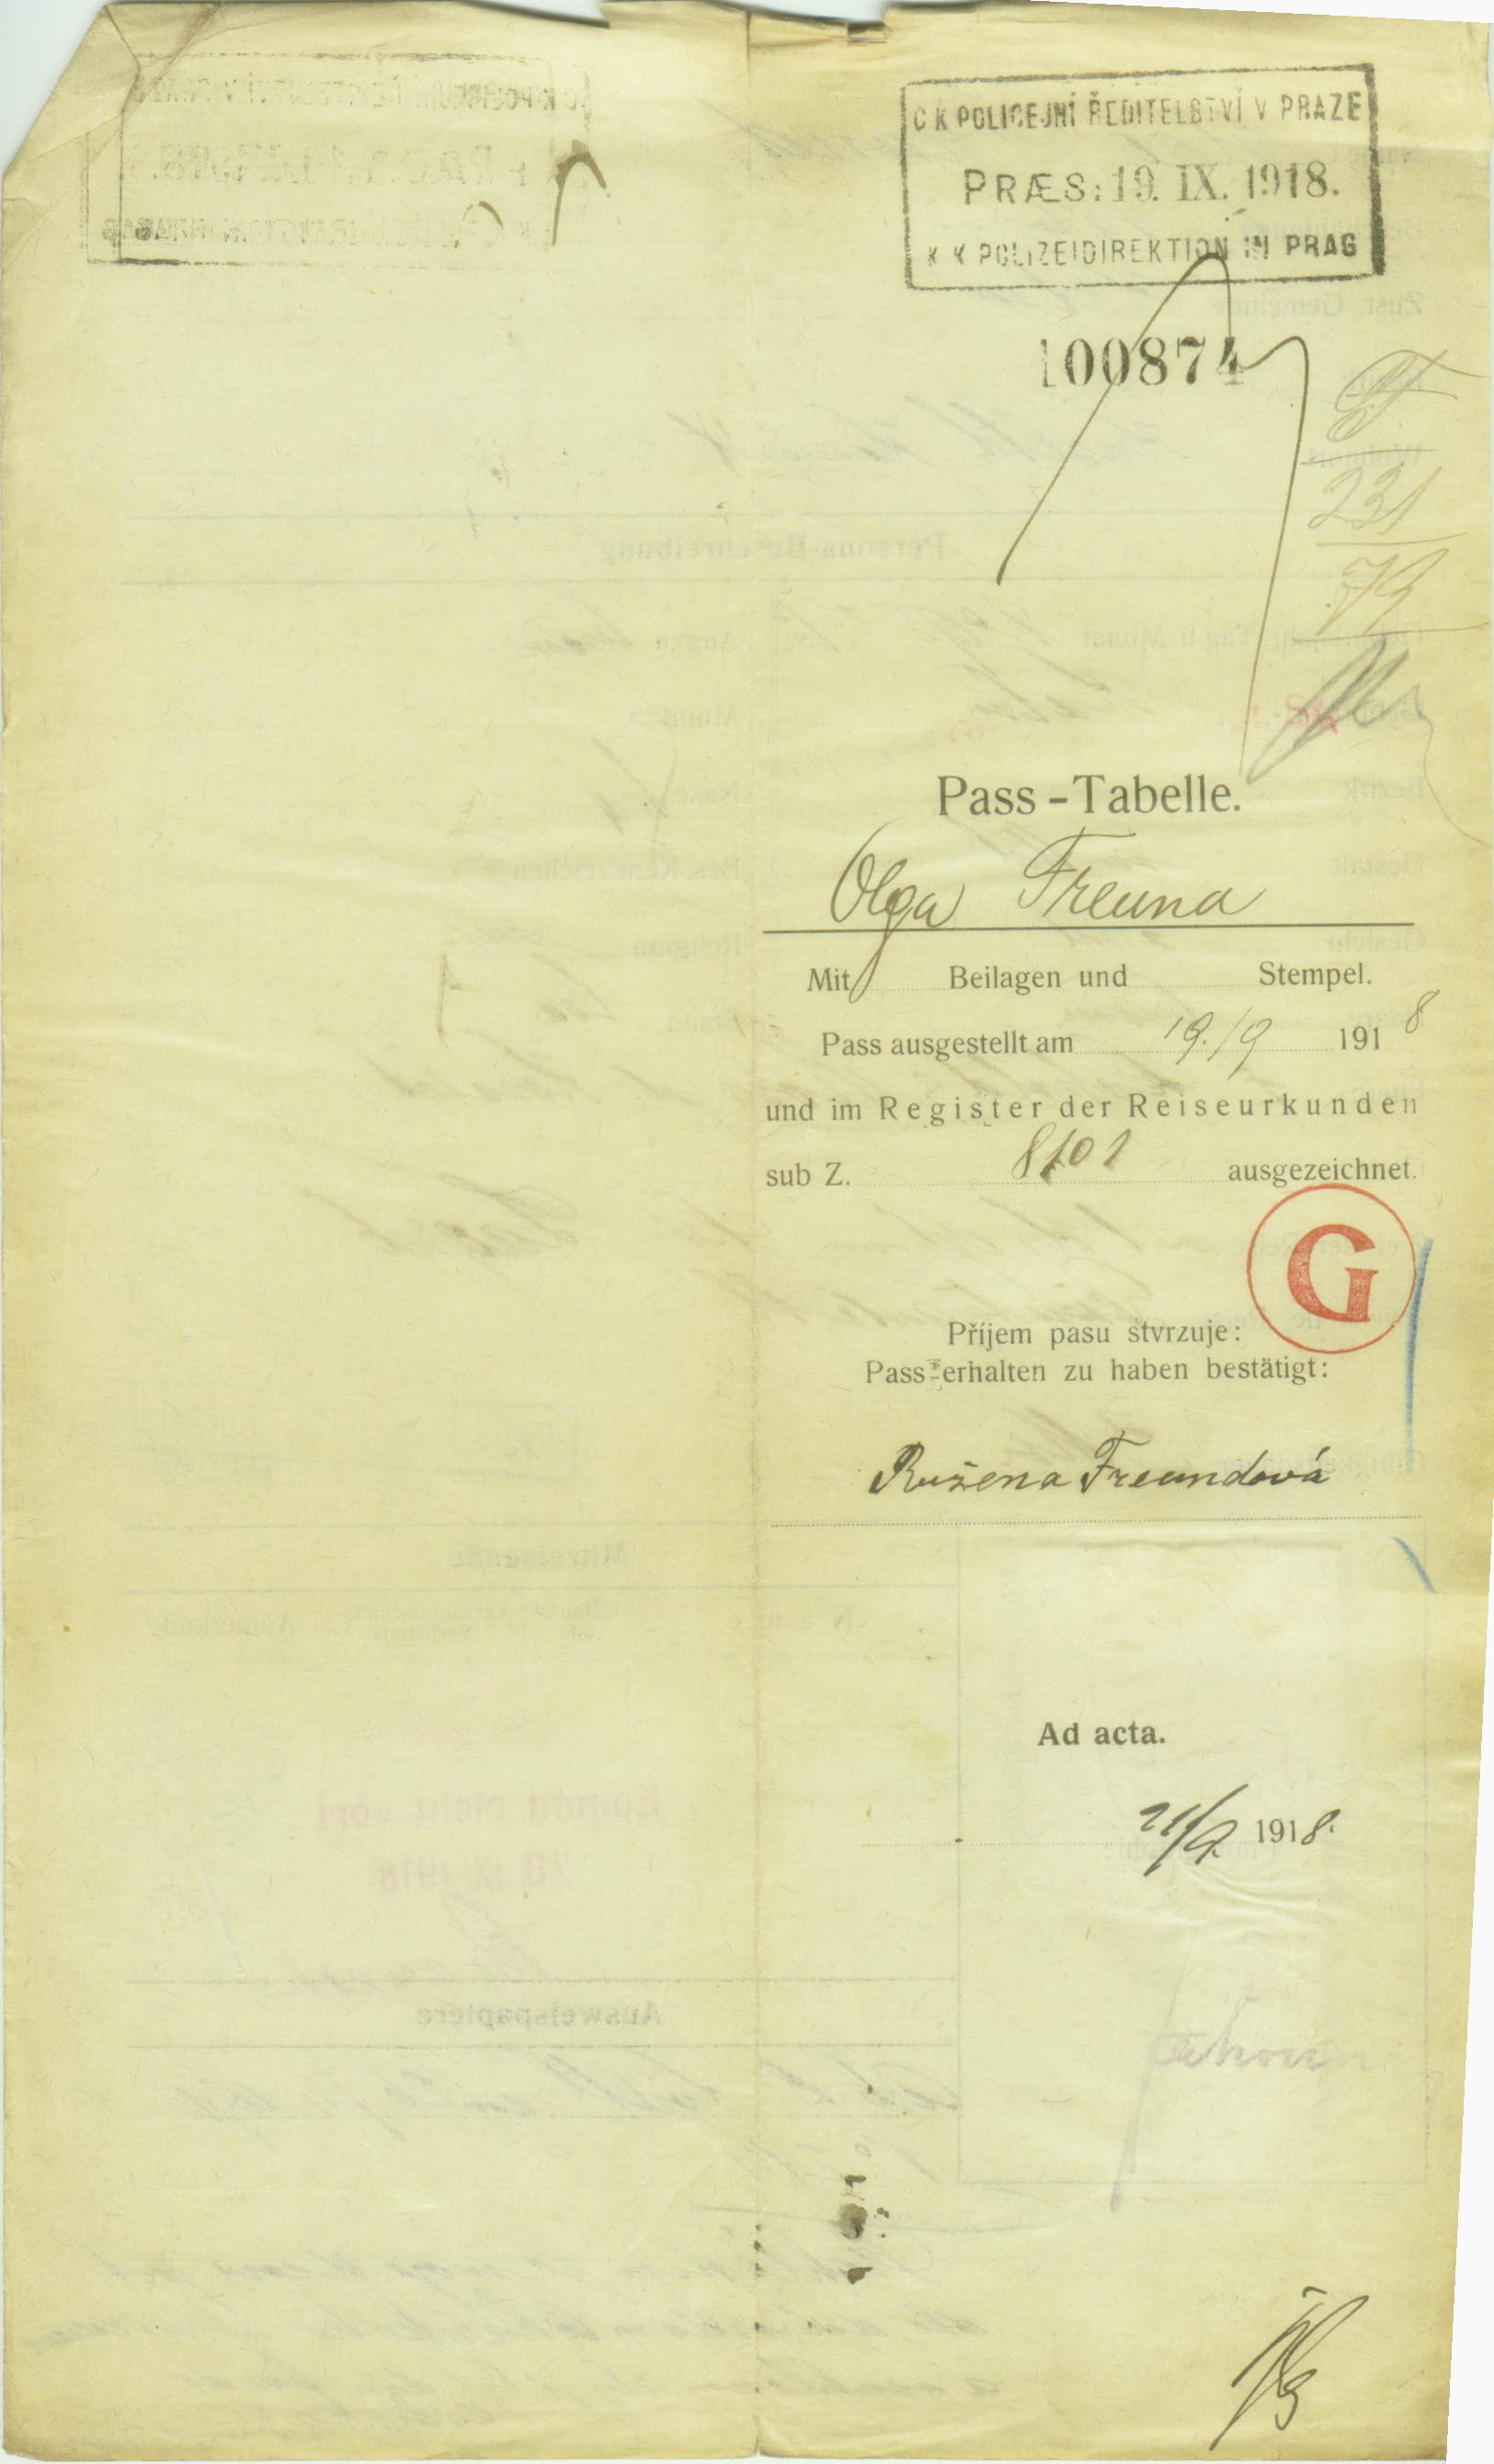 C K POLICEJNÍ ŘEDITELSTVÍ V PRAZE
PRÆS: 19. IX. 1918.
K K POLIZEIDIREKTION IN PRAG
100874
231
79
Pass-Tabelle.
Olga Freund
Mit Beilagen und Stempel.
Pass ausgestellt am 19./9 1918
und im Register der Reiseurkunden
sub Z. 8101 ausgezeichnet.
G
Příjem pasu stvrzuje:
Pass erhalten zu haben bestätigt:
Ružena Freundová
Ad acta.
21/9. 1918.